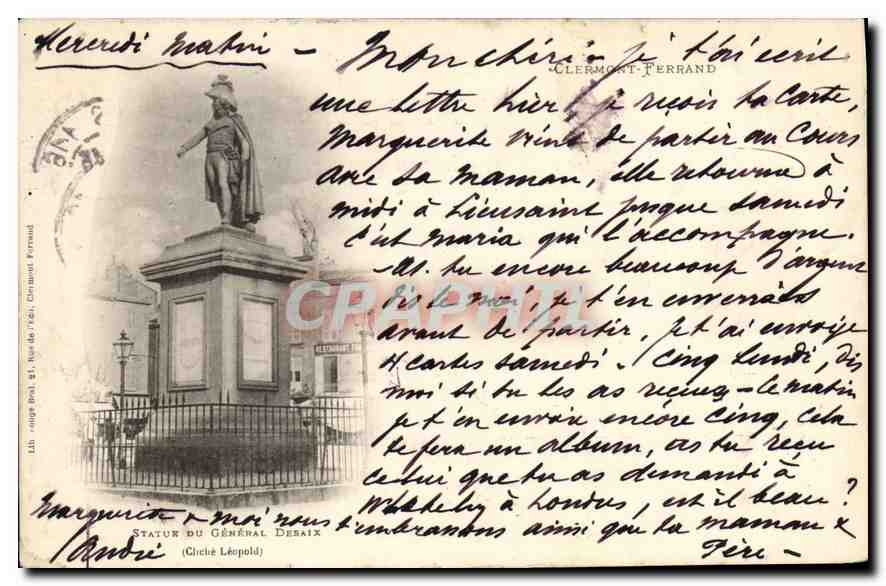 Mercredi Matin - Mon chéri - je t'ai écrit
CLERMONT-FERRAND
une lettre hier, je reçois ta carte,
Marguerite vient de partir au Cours
avec sa maman, elle retourne à
midi à Lieusaint jusque samedi
c'est Maria qui l'accompagne.
As tu encore beaucoup d'argent
dis le moi, je t'en enverrais
avant de partir, je t'ai envoyé
4 cartes samedi. Cinq Lundi, dis
moi si tu les as reçues - le matin
je t'en envoie encore Cinq, cela
te fera un album, as tu reçu
celui que tu as demandé à
à Londres, est-il beau ?
Marguerite & moi nous t'embrassons ainsi que ta maman &
André Père -
STATUE DU GÉNÉRAL DESAIX
(Cliché Léopold)
RESTAURANT
CPARPHIL
21, Rue de l'Ecu, Clermont Ferrand